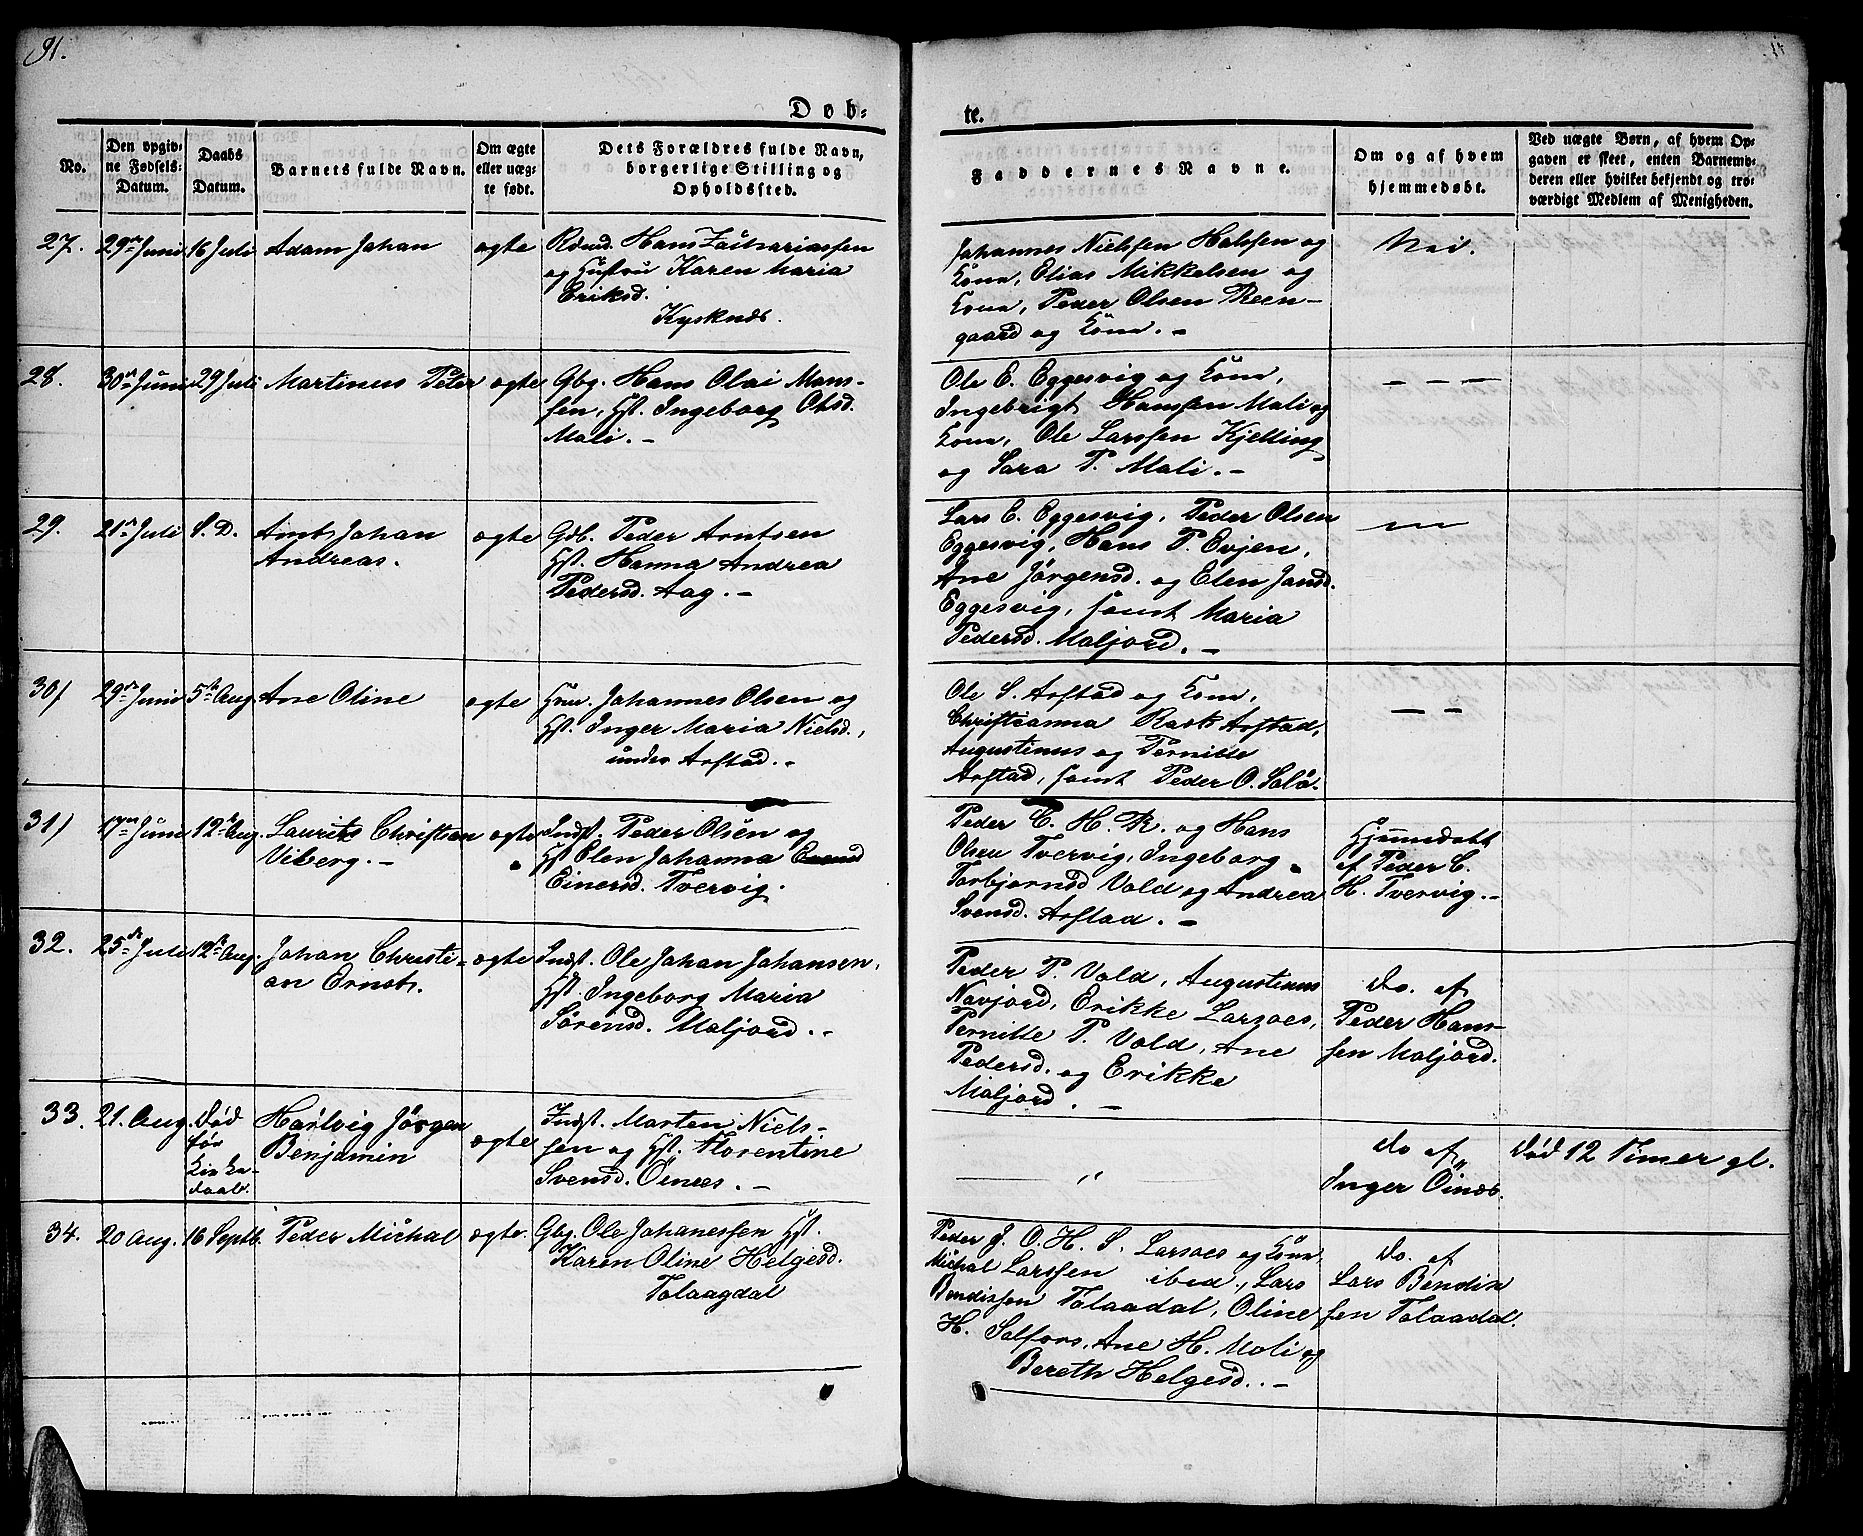 91.
Døb-
te.
No.
Den opgiv-
ne Fødsels-
Datum.
Daabs
Datum.
Barnets fulde Navn.
Om ægte
eller uæg-
te født.
Dets Forældres fulde Navn,
borgerlige Stilling og
Opholdssted.
Faddernes Navne.
Om og af hvem
hjemmedøbt.
Ved uægte Børn, af hvem Op-
gaven er skeet, enten Barnemo-
deren eller hvilket bekjendt og tro-
værdigt Medlem af Menigheden.
27.
29de Juni
16 Juli
Adam Johan
ægte
Rdmd. Hans Zachariassen
og Hustru Karen Maria
Eriksd.
Kysknæs.
Johannes Nielssen Halssen og
Kone, Elias Mikkelsen og
Kone, Peder Olsen Reen-
gaard og Kone. -
Nei.
28.
30te Juni
29 Juli
Martinus Peter
ægte
Gbg. Hans Olai Mons-
sen, Hst. Ingeborg Olsd.
Mali. -
Ole E. Eggesvig og Kone,
Ingebrigt Hanssen Mali og
Kone, Ole Larssen Kjelling
og Sara P. Mali. -
— — —
29.
21de Juli
S. D.
Arnt Johan
Andreas.
ægte
Gdb. Peder Arntsen
Hst. Hanna Andrea
Pedersd. Aag. -
Lars E. Eggesvig, Peder Olsen
Eggesvig, Hans P. Evjen,
Ane Jörgensd. og Elen Jansd.
Eggesvig, samt Maria
Pedersd. Maljord. -
30)
29de Juni
5te Aug.
Ane Oline
ægte
Hmd. Johannes Olsen og
Hst. Inger Maria Nielsd.,
under Arstad. -
Ole S. Arstad og Kone,
Christianna Rask Arstad,
Augustinus og Pernille
Arstad, samt Peder O. Solö.
— —
31)
17de Juni
12te Aug.
Laurits Christian
Viberg. -
ægte
Indst. Peder Olsen og
Hst Elen Johanna
Einersd. Tvervig.
Peder C. H. R. og Hans
Olsen Tvervig, Ingeborg
Torbjørnsd Vold og Andrea
Svensd. Arstad. -
Hjemmedøbt
af Peder C.
H. Tvervig. -
32.
25de Juli
12te Aug.
Johan Christi-
an Ernst.
ægte
Indst. Ole Johan Johansen,
Hst. Ingeborg Maria
Sörensd. Maljord. -
Peder P. Vold, Augustinus
Navjord, Erikke Larsoes,
Pernille P. Vold, Ane
Pedersd. og Erikke
Maljord. -
do. af
Peder Hans-
sen Maljord.
33.
21. Aug.
død
før
Kirke-
daab.
Hartvig Jörgen
Benjamin
ægte
Indst. Morten Niels-
sen og Hst. Florentine
Svensd. Öines. -
"
do af
Inger Öines.
død 12 Timer gl.
34.
20 Aug.
16 Septb.
Peder Michal
ægte.
Gbg. Ole Johanessen Hst.
Karen Oline Helgesd.
Tolaagdal
Peder J. O. H. S. Larsoes og Kone,
Michal Larssen ibid., Lars
Bendixsen Tolaadal, Oline
H. Solfors, Ane H. Moli og
Bereth Helgesd. -
do. af
Lars Bendix
sen Tolaadal.